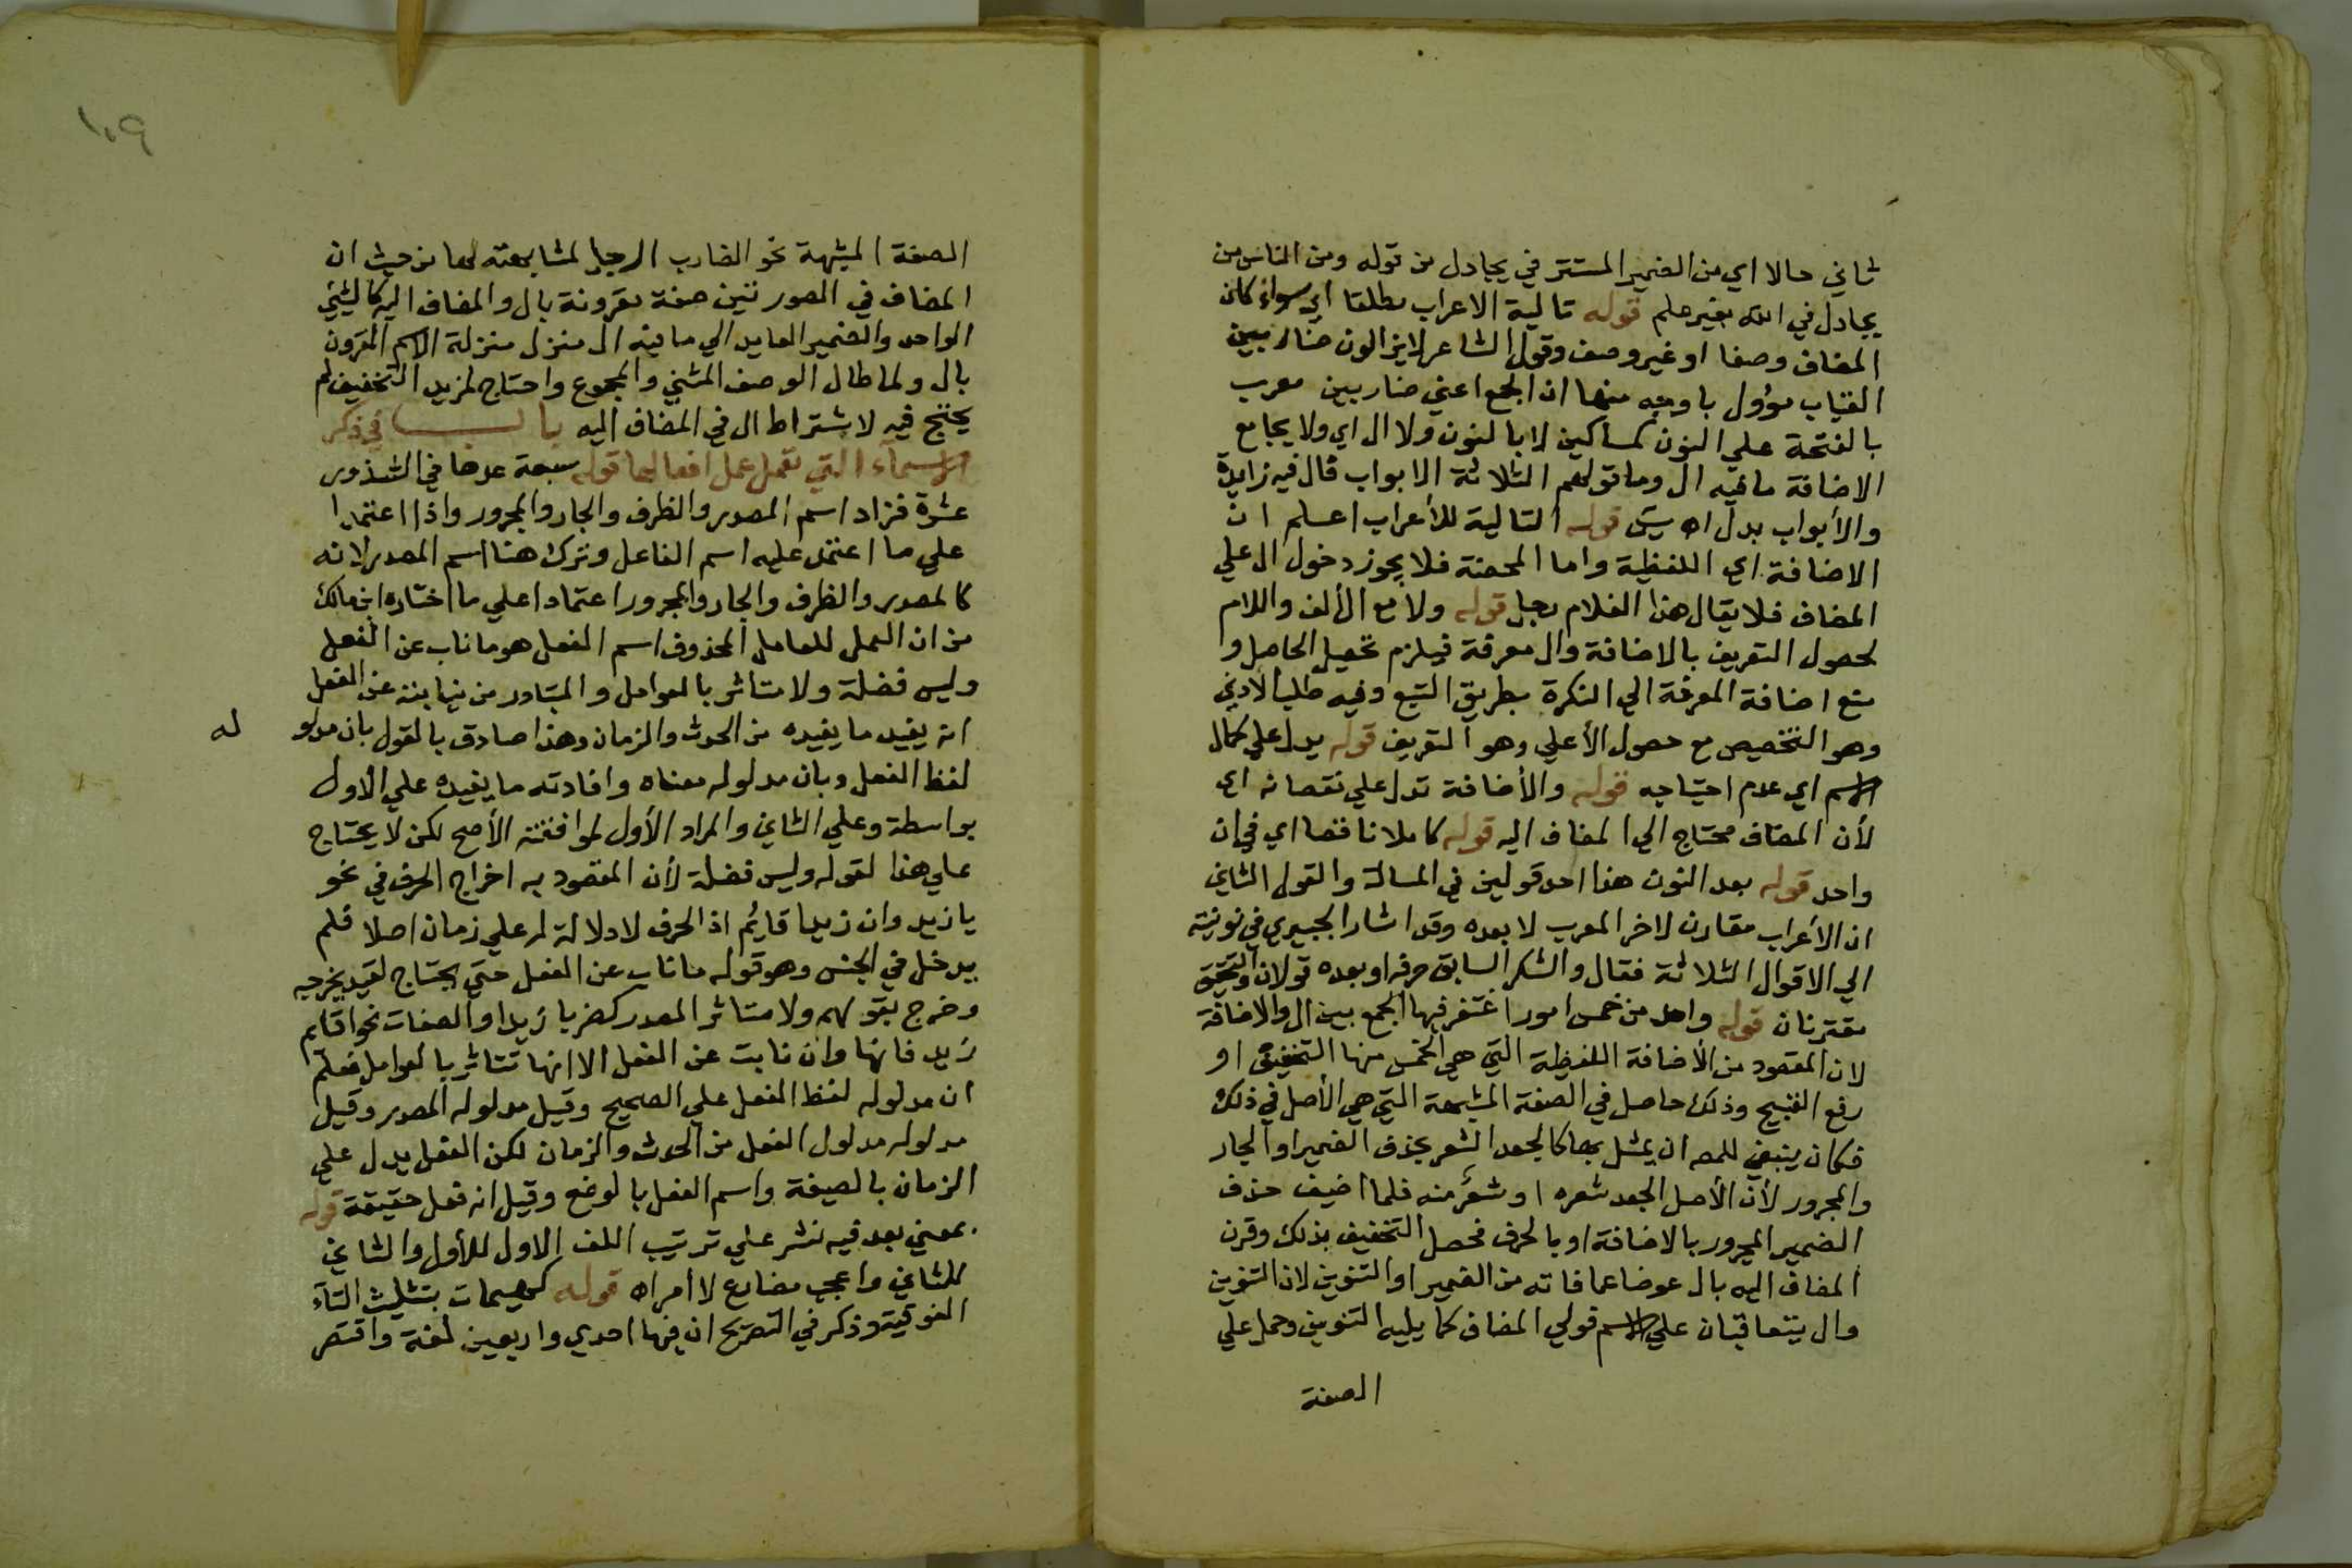 ثاني حالا اي من الضمير المستتر في يجادل من قوله ومن الناس من
يجادل في الله بغير علم قوله تالية الاعراب مطلقا اي سواء كان
المضاف وصفا او غير وصف وقول الشاعر لايزالون ضاربين
القباب مؤول باوجه منها ان الجمع اعني ضاربين معرب
بالفتحة علي النون كمساكين لا بالنون ولا ال اي ولا يجامع
الاضافة ما فيه ال وما قولهم الثلاثة الابواب فال فيه زايدة
والأبواب بدل اه يس قوله التالية للأعراب اعلم ان
الاضافة اي اللفظية واما المحضة فلا يجوز دخول ال علي
المضاف فلا يقال هذا الغلام رجل قوله ولا مع الألف واللام
لحصول التعريف بالاضافة وال معرفة فيلزم تحصيل الحاصل و
منع اضافة المعرفة الي النكرة بطريق التبع وفيه طلب الأدني
وهو التخصيص مع حصول الأعلي وهو التعريف قوله يدل علي كمال
الاسم اي عدم احتياجه قوله والأضافة تدل علي نقصانه اي
لأن المضاف محتاج الي المضاف اليه قوله كاملا ناقصا اي في ان
واحد قوله بعد النون هذا احد قولين في المسالة والقول الثاني
ان الأعراب مقارن لاخر المعرب لا بعده وقد اشار الجبيري في نونيته
الي الاقوال الثلاثة فقال والشكر السابق حرفه او بعده قولان والتحقيق
مقترنان قوله واحد من خمس امور اغتفر فيها الجمع بين ال والاضافة
لان المقصود من الأضافة اللفظية التي هي الخمس منها التخفيف او
رفع القبيح وذلك حاصل في الصفة المشبهة التي هي الأصل في ذلك
فكان ينبغي للمصـ ان يمثل بها كالجعد الشعر بحذف الضمير او الجار
والمجرور لأن الأصل الجعد شعره او شعر منه فلما اضيف حذف
الضمير المجرور بالاضافة او بالحرف فحصل التخفيف بذلك وقرن
المضاف اليه بال عوضا عما فاته من الضمير او التنوين لان التنوين
وال يتعاقبان علي الاسم فولي المضاف كما يليه التنوين وحمل علي
الصفة
١٠٩
الصفة المشبهة نحو الضارب الرجل لمشابهته لها من حيث ان
المضاف في الصورتين صفة مقرونة بال والمضاف اليه كالشيئ
الواحد والضمير العايد الي ما فيه ال منزل منزلة الاسم المقرون
بال ولما طال الوصف المثني والمجموع واحتاج لمزيد التخفيف لم
يحتج فيه لاشتراط ال في المضاف اليه باب في ذكر
الاسماء التي تعمل عمل افعالها قوله سبعة عدها في الشذور
عشرة فزاد اسم المصدر والظرف والجار والمجرور واذا اعتمدا
علي ما اعتمد عليه اسم الفاعل وترك هنا اسم المصدر لانه
كالمصدر والظرف والجار والمجرور اعتمادا علي ما اختاره ابن مالك
من ان العمل للعامل المحذوف اسم الفعل هو ما ناب عن الفعل
وليس فضلة ولا متاثر بالعوامل والمتبادر من نيابته عن الفعل
انه يفيد ما يفيده من الحدث والزمان وهذا صادق بالقول بان مدلو له
لفظ الفعل وبان مدلوله معناه وافادته ما يفيده علي الأول
بواسطة وعلي الثاني والمراد الأول لموافقته الأصح لكن لا يحتاج
علي هذا لقوله وليس فضلة لأن المقصود به اخراج الحرف في نحو
يا زيد وان زيدا قايم اذ الحرف لا دلالة له علي زمان اصلا فلم
يدخل في الجنس وهو قوله ما ناب عن الفعل حتي يحتاج لقيد يخرجه
وخرج بقولهم ولا متاثر المصدر كضربا زيدا والصفات نحو اقايم
زيد فانها وان نابت عن الفعل الا انها تتاثر بالعوامل فعلم
ان مدلوله لفظ الفعل علي الصحيح وقيل مدلوله المصدر وقيل
مدلوله مدلول الفعل من الحدث والزمان لكن الفعل يدل علي
الزمان بالصيغة واسم الفعل بالوضع وقيل انه فعل حقيقة قوله
بمعني بعد فيه نشر علي ترتيب اللف الاول للأول والثاني
للثاني واعجب مضارع لا امر اه قوله كهيهات بتثليث التاء
الفوقية وذكر في التصريح ان فيها احدي واربعين لغة واقتصر